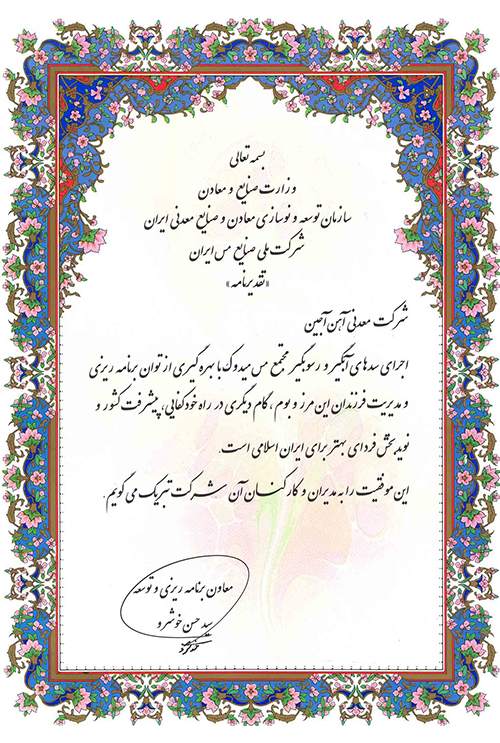 بسمه تعالی
وزارت صنایع و معادن
سازمان توسعه و نوسازی معادن و صنایع معدنی ایران
شرکت ملی صنایع مس ایران
«تقدیرنامه»
شرکت معدنی آهن آجین
اجرای سدهای آبگیر و رسوبگیر مجتمع مس میدوک با بهره گیری از توان برنامه ریزی
و مدیریت فرزندان این مرز و بوم، گام دیگری در راه خودکفایی، پیشرفت کشور و
نویدبخش فردای بهتر برای ایران اسلامی است.
این موفقیت را به مدیران و کارکنان آن شرکت تبریک می گویم.
معاون برنامه ریزی و توسعه
سید حسن خوشرو